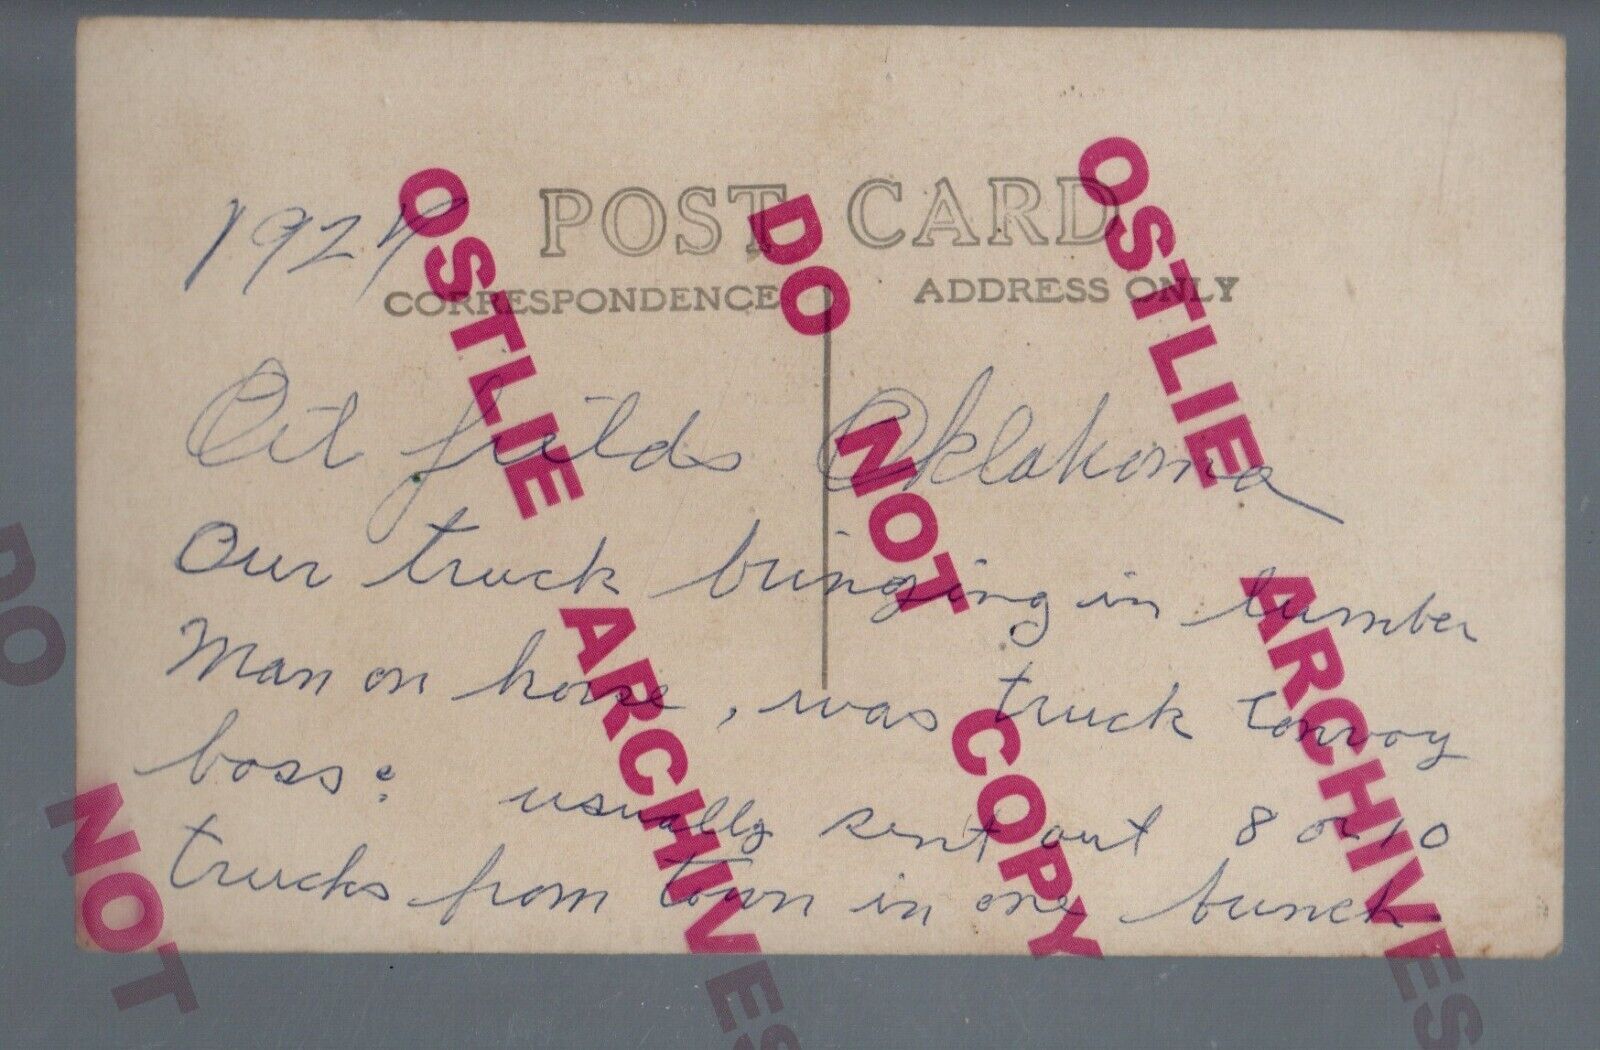 POST CARD
1924
CORRESPONDENCE ADDRESS ONLY
Oil fields Oklahoma
Our truck bringing in lumber
Man on horse, was truck convoy
boss: usually sent out 8 or 10
trucks from town in one bunch.
OSTLIE ARCHIVES
DO NOT COPY
OSTLIE ARCHIVES
DO NOT